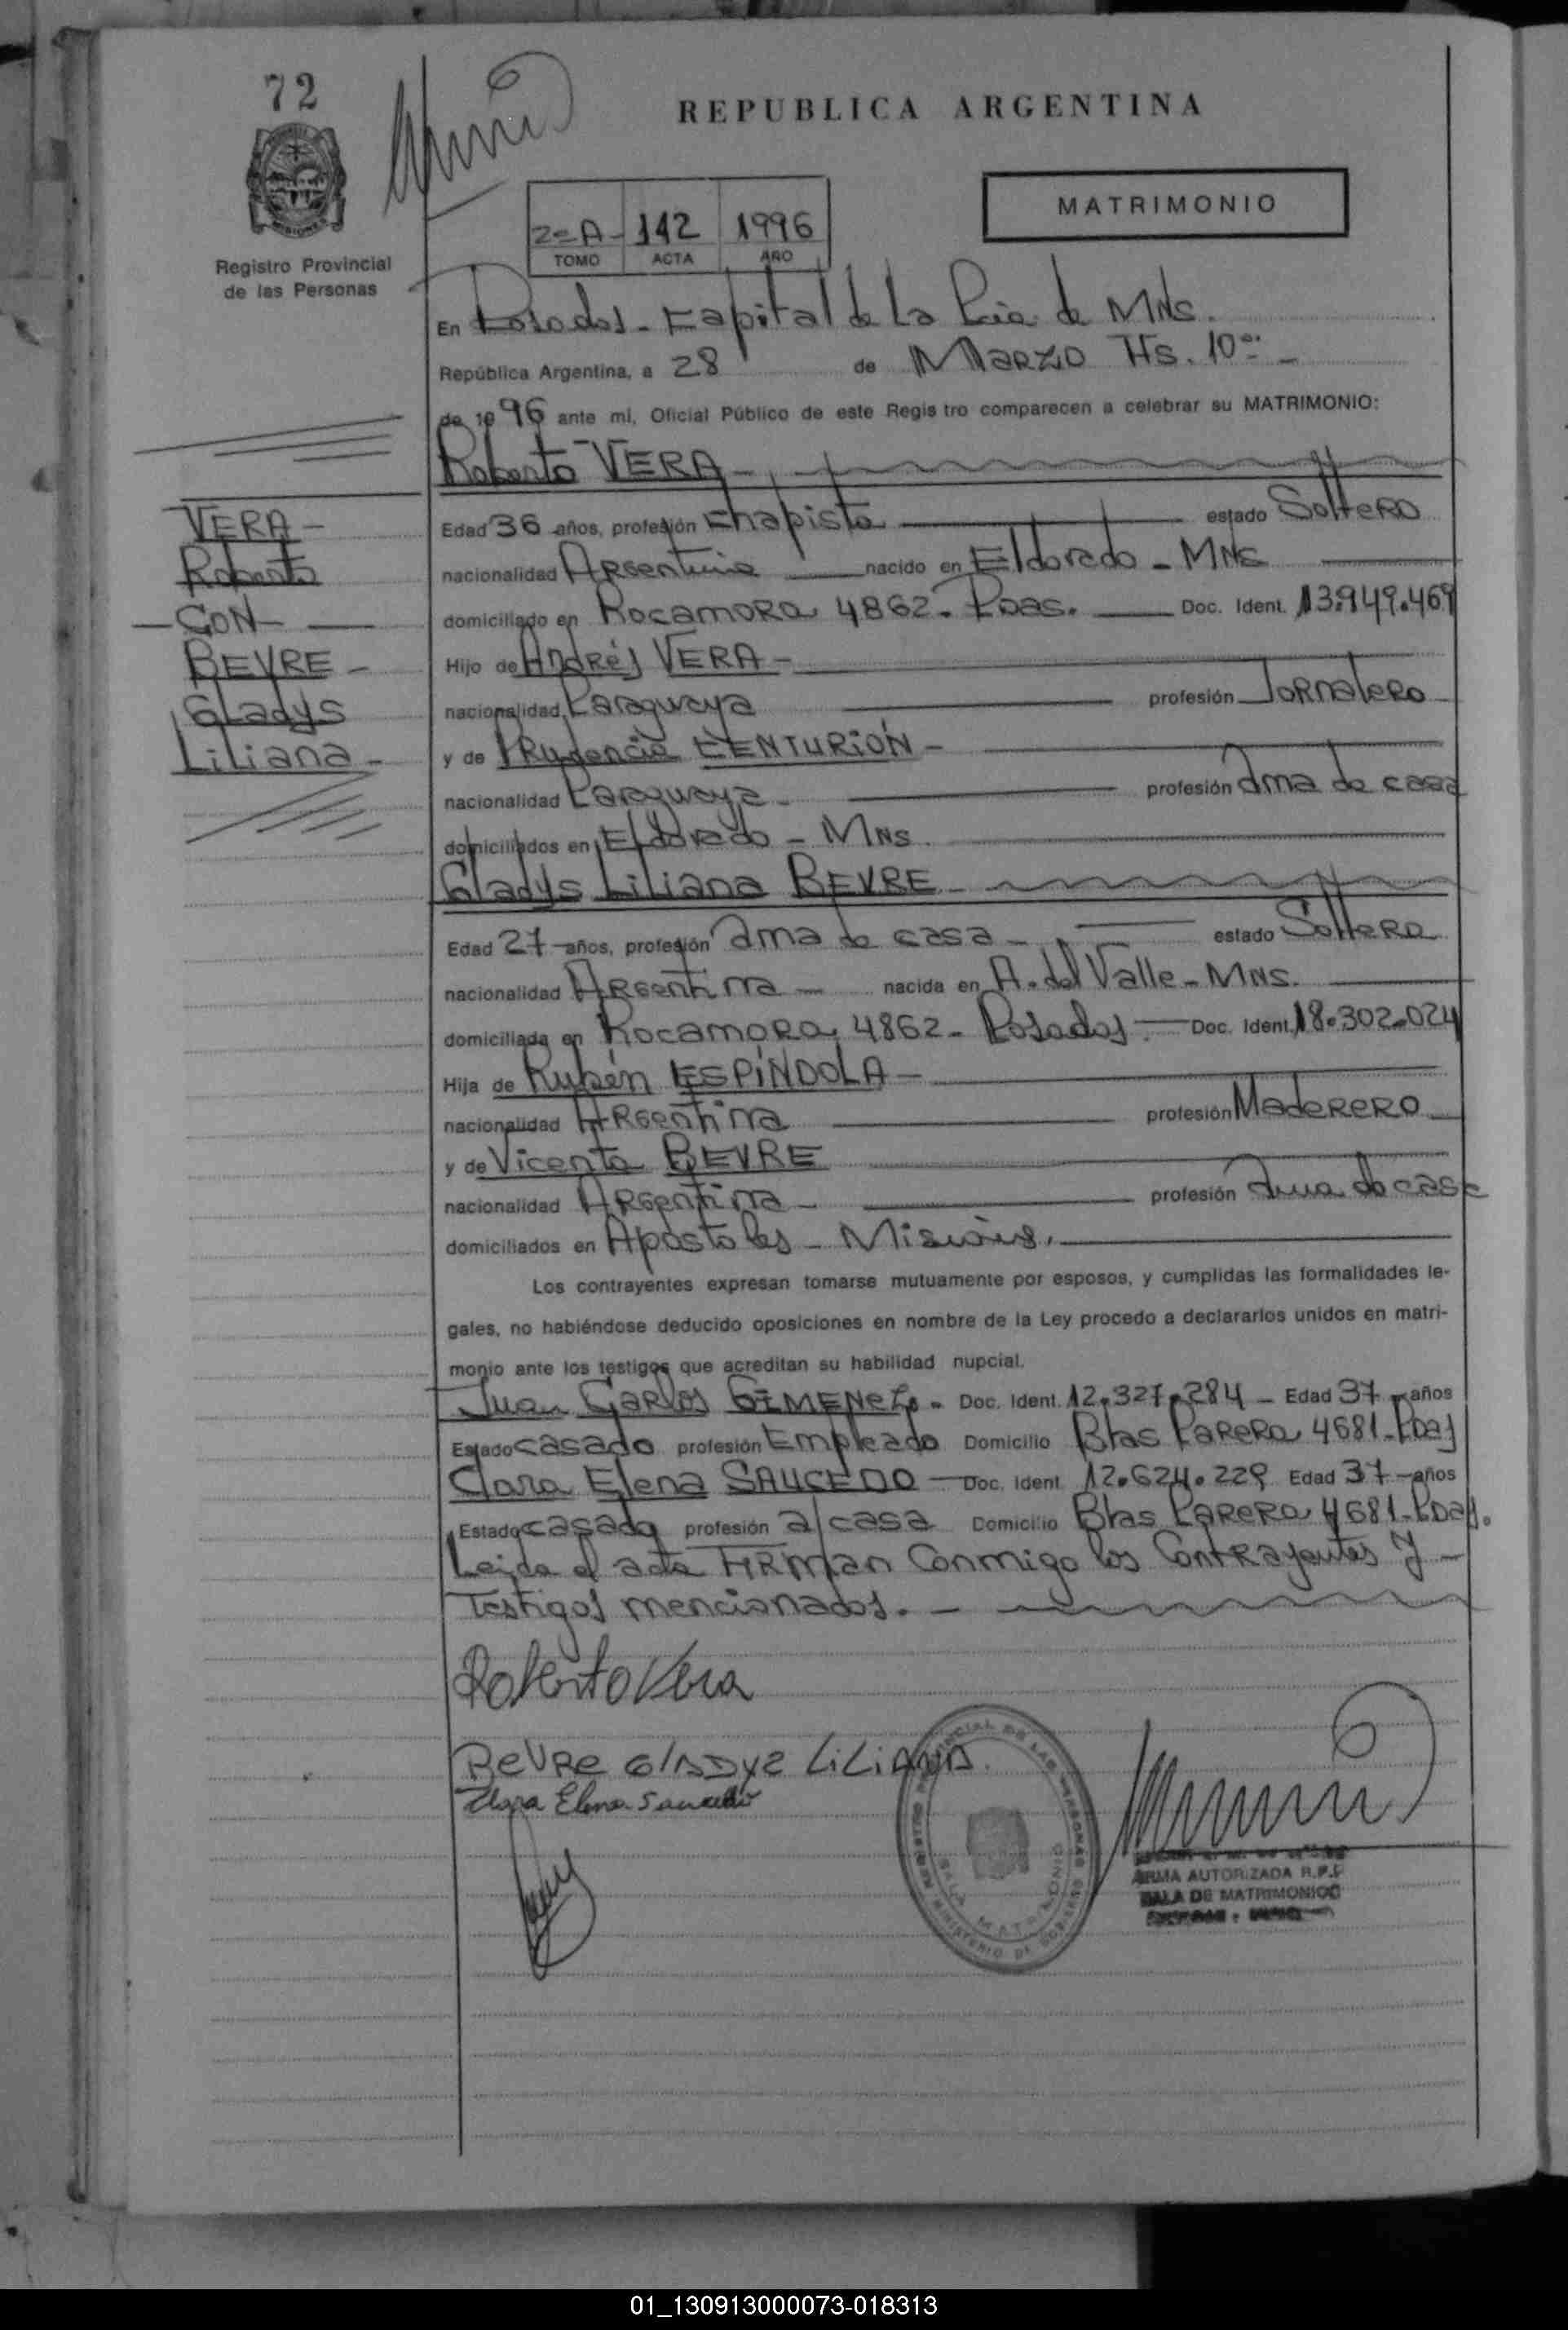 72
REPUBLICA ARGENTINA
MATRIMONIO
2=A- 142 1996
TOMO ACTA AÑO
Registro Provincial
de las Personas
En Posadas - Capital de La Pcia. de MNS.
República Argentina, a 28 de MARZO Hs. 10
de 1996 ante mi, Oficial Público de este Regis tro comparecen a celebrar su MATRIMONIO:
Roberto VERA -
VERA -
Roberto
- CON -
BEVRE -
Gladys
Liliana -
Edad 36 años, profesión Chapista estado Soltero
nacionalidad Argentina nacido en Eldorado - MNS
domiciliado en Rocamora 4862 - Pdas. Doc. Ident. 13.949.469
Hijo de Andrés VERA -
nacionalidad Paraguaya profesión Jornalero
y de Prudencia CENTURIÓN -
nacionalidad Paraguaya - profesión Ama de casa
domiciliados en Eldorado - MNS.
Gladys Liliana BEVRE -
Edad 27 años, profesión Ama de casa - estado Soltera
nacionalidad Argentina - nacida en A. del Valle - MNS.
domiciliada en Rocamora 4862 - Posadas - Doc. Ident. 18.302.024
Hija de Rubén ESPÍNDOLA -
nacionalidad Argentina profesión Maderero
y de Vicenta BEVRE
nacionalidad Argentina - profesión Ama de casa
domiciliados en Apóstoles - Misiones.
Los contrayentes expresan tomarse mutuamente por esposos, y cumplidas las formalidades le-
gales, no habiéndose deducido oposiciones en nombre de la Ley procedo a declararlos unidos en matri-
monio ante los testigos que acreditan su habilidad nupcial.
Juan Carlos GIMENEZ. - Doc. Ident. 12.327.284 - Edad 37 años
Estado casado profesión Empleado Domicilio Blas Parera 4681 - Pdas
Clara Elena SAUCEDO - Doc. Ident. 12.624.229 Edad 37 - años
Estado casada profesión a/casa Domicilio Blas Parera 4681 - Pdas.
Leída el acta FIRMAN Conmigo los Contrayentes y -
Testigos mencionados. -
Roberto Vera
BEVRE GLADYZ LILIANA.
Clara Elena Saucedo
REGISTRO PROVINCIAL DE LAS PERSONAS
SALA MATRIMONIO
MINISTERIO DE GOBIERNO
FIRMA AUTORIZADA R.P.P.
SALA DE MATRIMONIOS
01_130913000073-018313